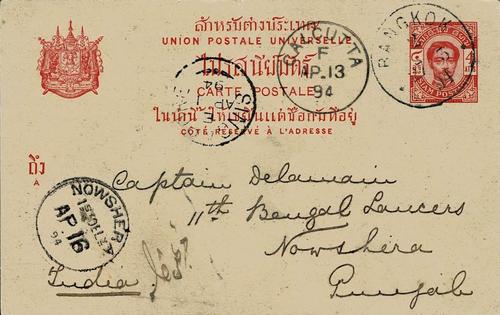 สำหรับต่างประเทศ
UNION POSTALE UNIVERSELLE
ไปรสนียบัตร
CARTE POSTALE
ในน่านี้ให้เขียนแต่ชื่อกับที่อยู่
COTÉ RÉSERVÉ À L'ADRESSE
CALCUTTA
F
AP.13
94
BANGKOK
94
SIAM POSTAGE
AP
94
ถึง
A
Captain Delamain
11th Bengal Lancers
Nowshera
Punjab
India
NOWSHERA
AP.16
94